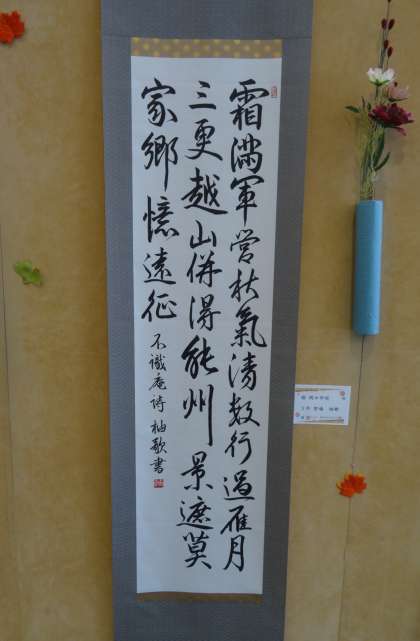 霜満軍営秋氣清数行過雁月
三更越山併得能州景遮莫
家郷憶遠征
不識庵詩 柚歌書